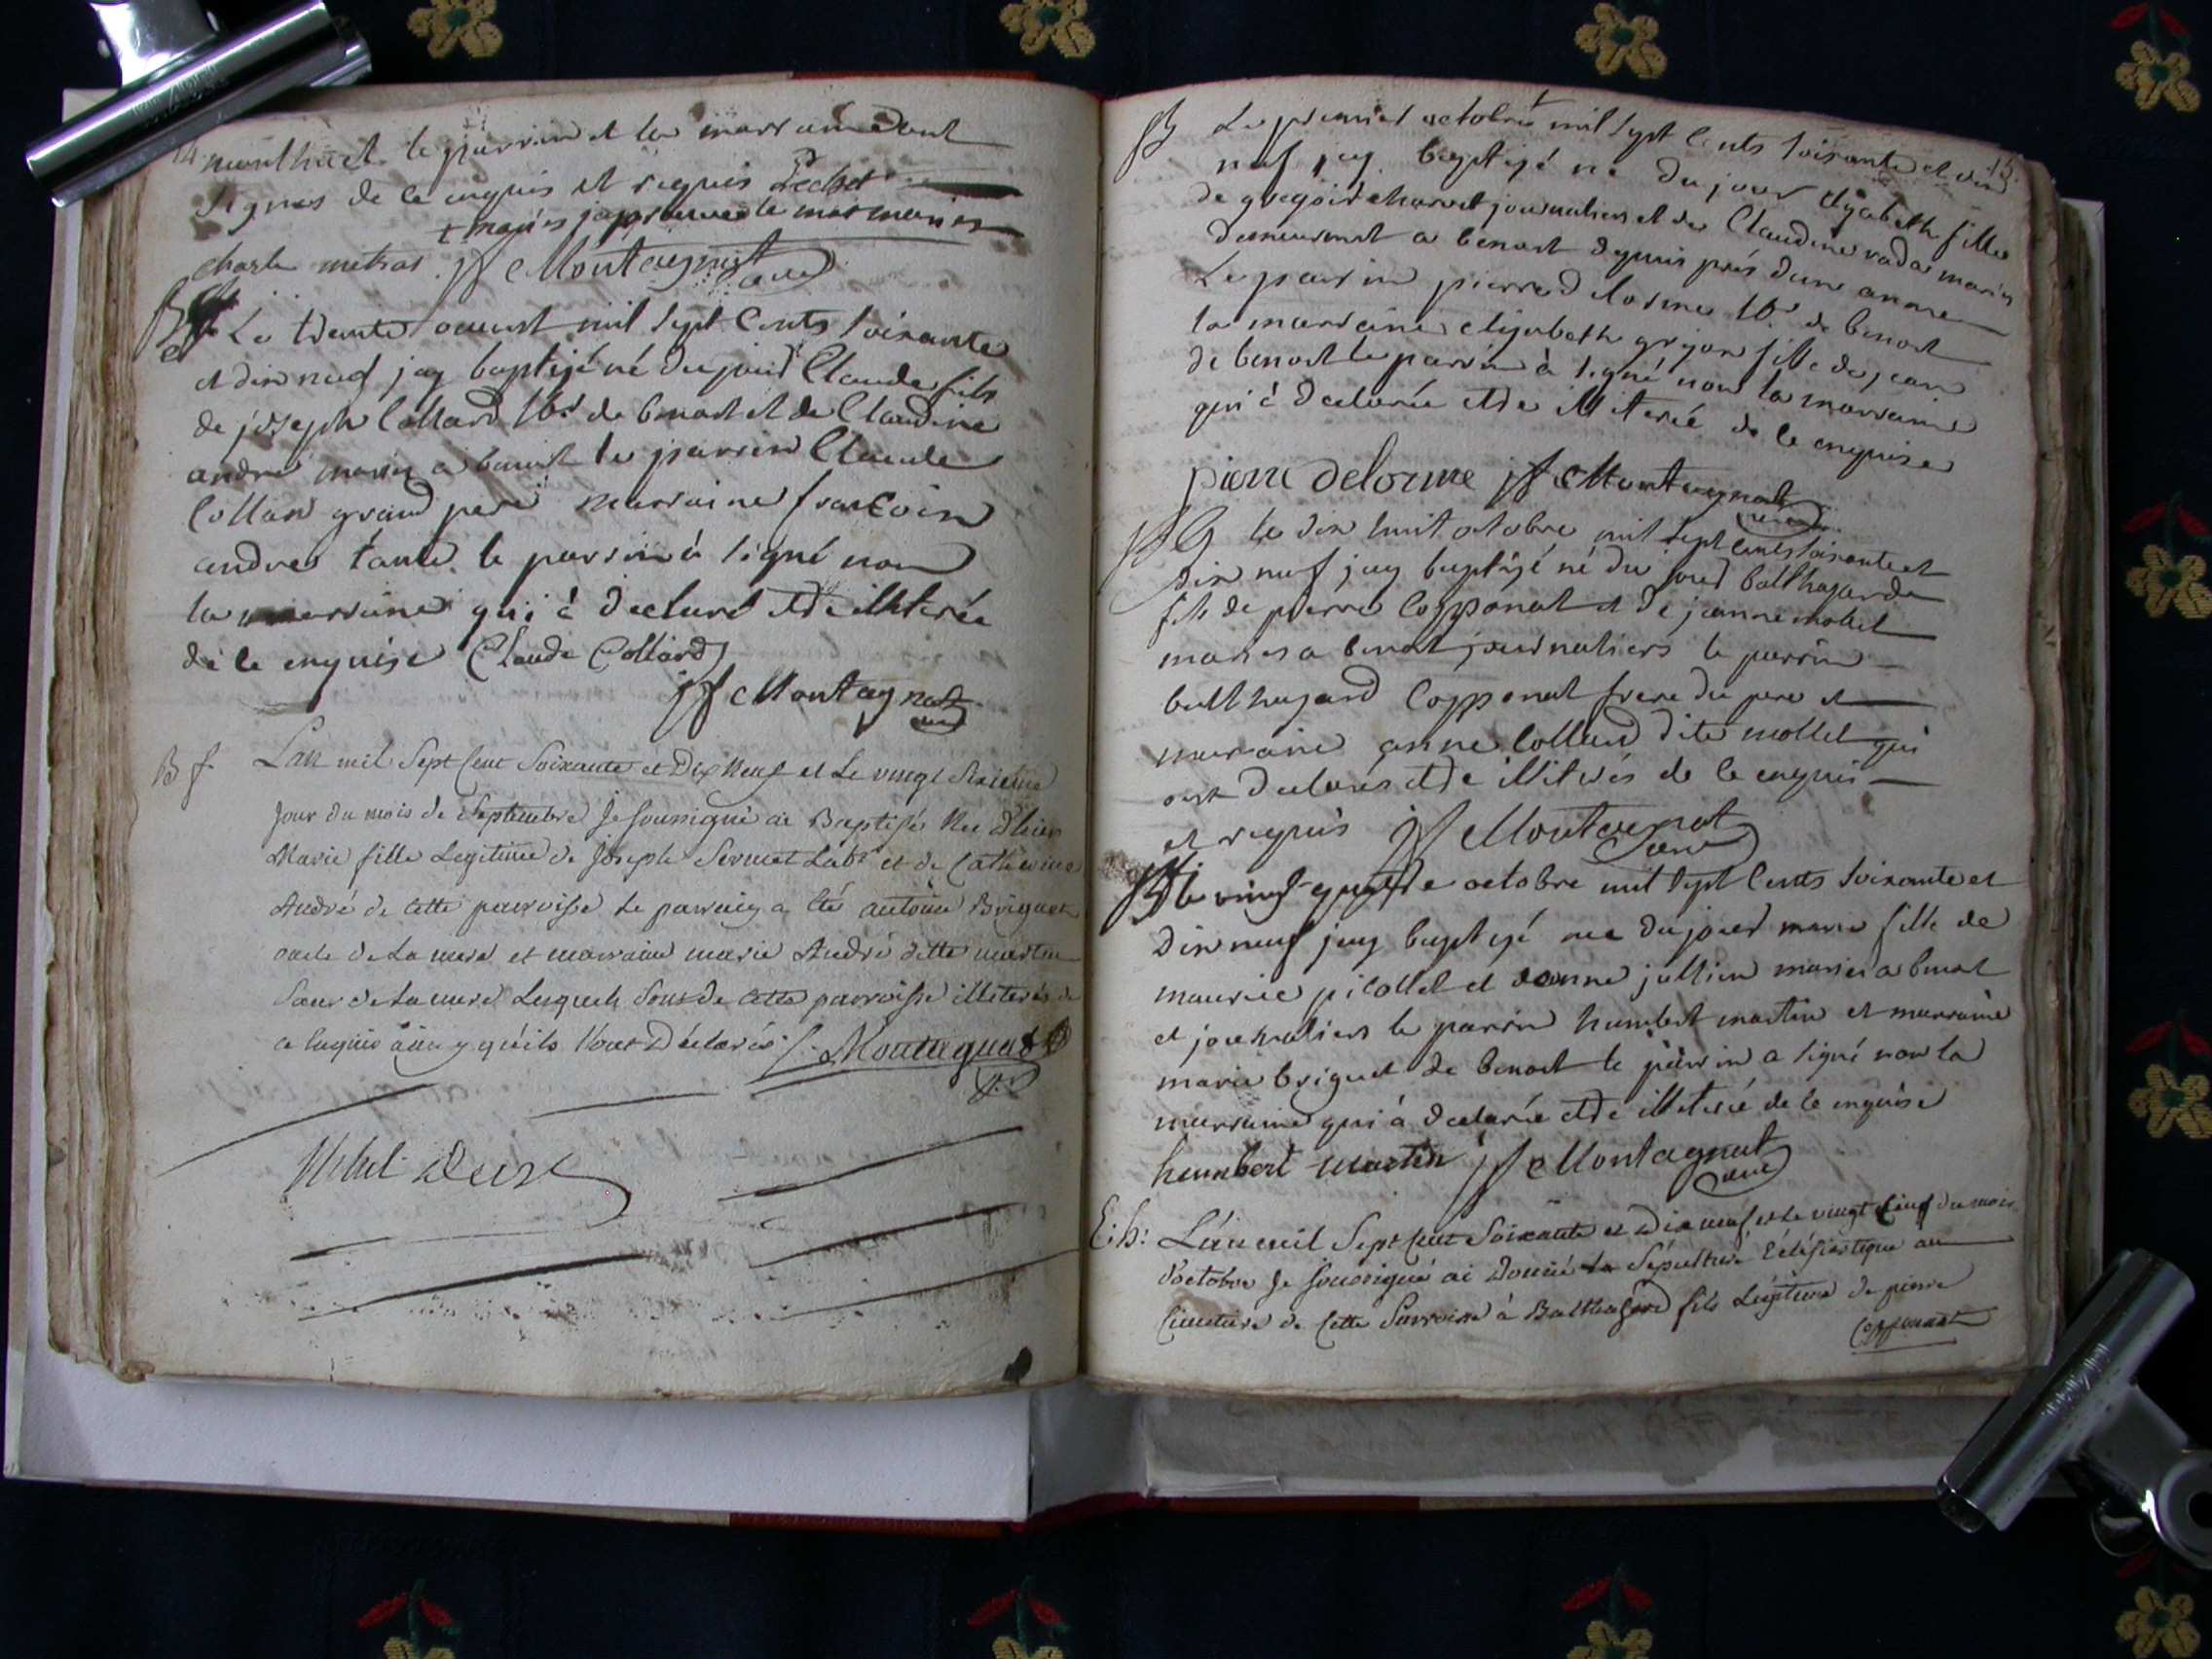 14
monthuel le parrin et la marraine ont
signes de ce enquis et requis
+ mariés japreuve le mot mariés
charle mitras jf Montagnat
curé
Bf Le trente aoust mil sept cents soixante
et dix neuf jay baptizé né du jour Claude fils
de joseph Collard lbr de benost et de Claudine
andre maries a benost le parrin Claude
Collard grand pere marraine francoise
andre tante le parrin à signé non
la marraine qui à declaré etre illiterée
de ce enquise Claude Collard
jf Montagnat
curé
B f. Lan mil Sept Cent Soixante et Dix Neuf et Le vingt Sixieme
Jour du mois de Septembre Je soussigné ai Baptisé Née d'hier
Marie fille Legitime de Joseph Sermet Labr et de Catherine
André de cette parroisse Le parrain a été antoine Briguet
oncle de La mere et marraine marie André ditte martin
Sœur de La mere Lesquels Sont de cette parroisse illiterés de
ce Enquis ainsy qu'ils L'ont Déclarés Montagnat
15
B Le premier octobre mil sept cents soixante et dix
neuf jay baptizé né du jour elizabeth fille
de gregoire charvet journalier et de Claudine vada maries
demeurant a benost depuis prés dune annee
Le parrin pierre delorme lbr de benost
la marraine elizabeth grijon fille de jean
de benost le parrin à signé non la marraine
qui à declarée etre illiterée de ce enquise
pierre delorme jf Montagnat
curé
B G le dix huit octobre mil sept cents soixante et
dix neuf jay baptizé né du jour balthazarde
fils de pierre Copponat et de jeanne mollet
maries a benost journaliers le parrin
balthazard Copponat frere du pere et
marraine anne Collard dite mollet qui
ont declarés etre illiterés de ce enquis
et requis jf Montagnat
curé
Bf le vingt quattre octobre mil sept cents soixante et
dix neuf jay baptizé née du jour marie fille de
maurice picollet et jeanne jullien maries a benost
et journaliers le parrin humbert martin et marraine
marie briguet de benost le parrin a signé non la
marraine qui à declarée etre illiterée de ce enquise
humbert martin jf Montagnat
curé
E: h: L'an mil Sept Cent Soixante et Dix neuf et Le vingt Cinq du mois
d'octobre Je soussigné ai Donné La Sépulture Ecclésiastique au
Cimetiere de Cette Parroisse à Balthasard fils Légitime de pierre
Copponat